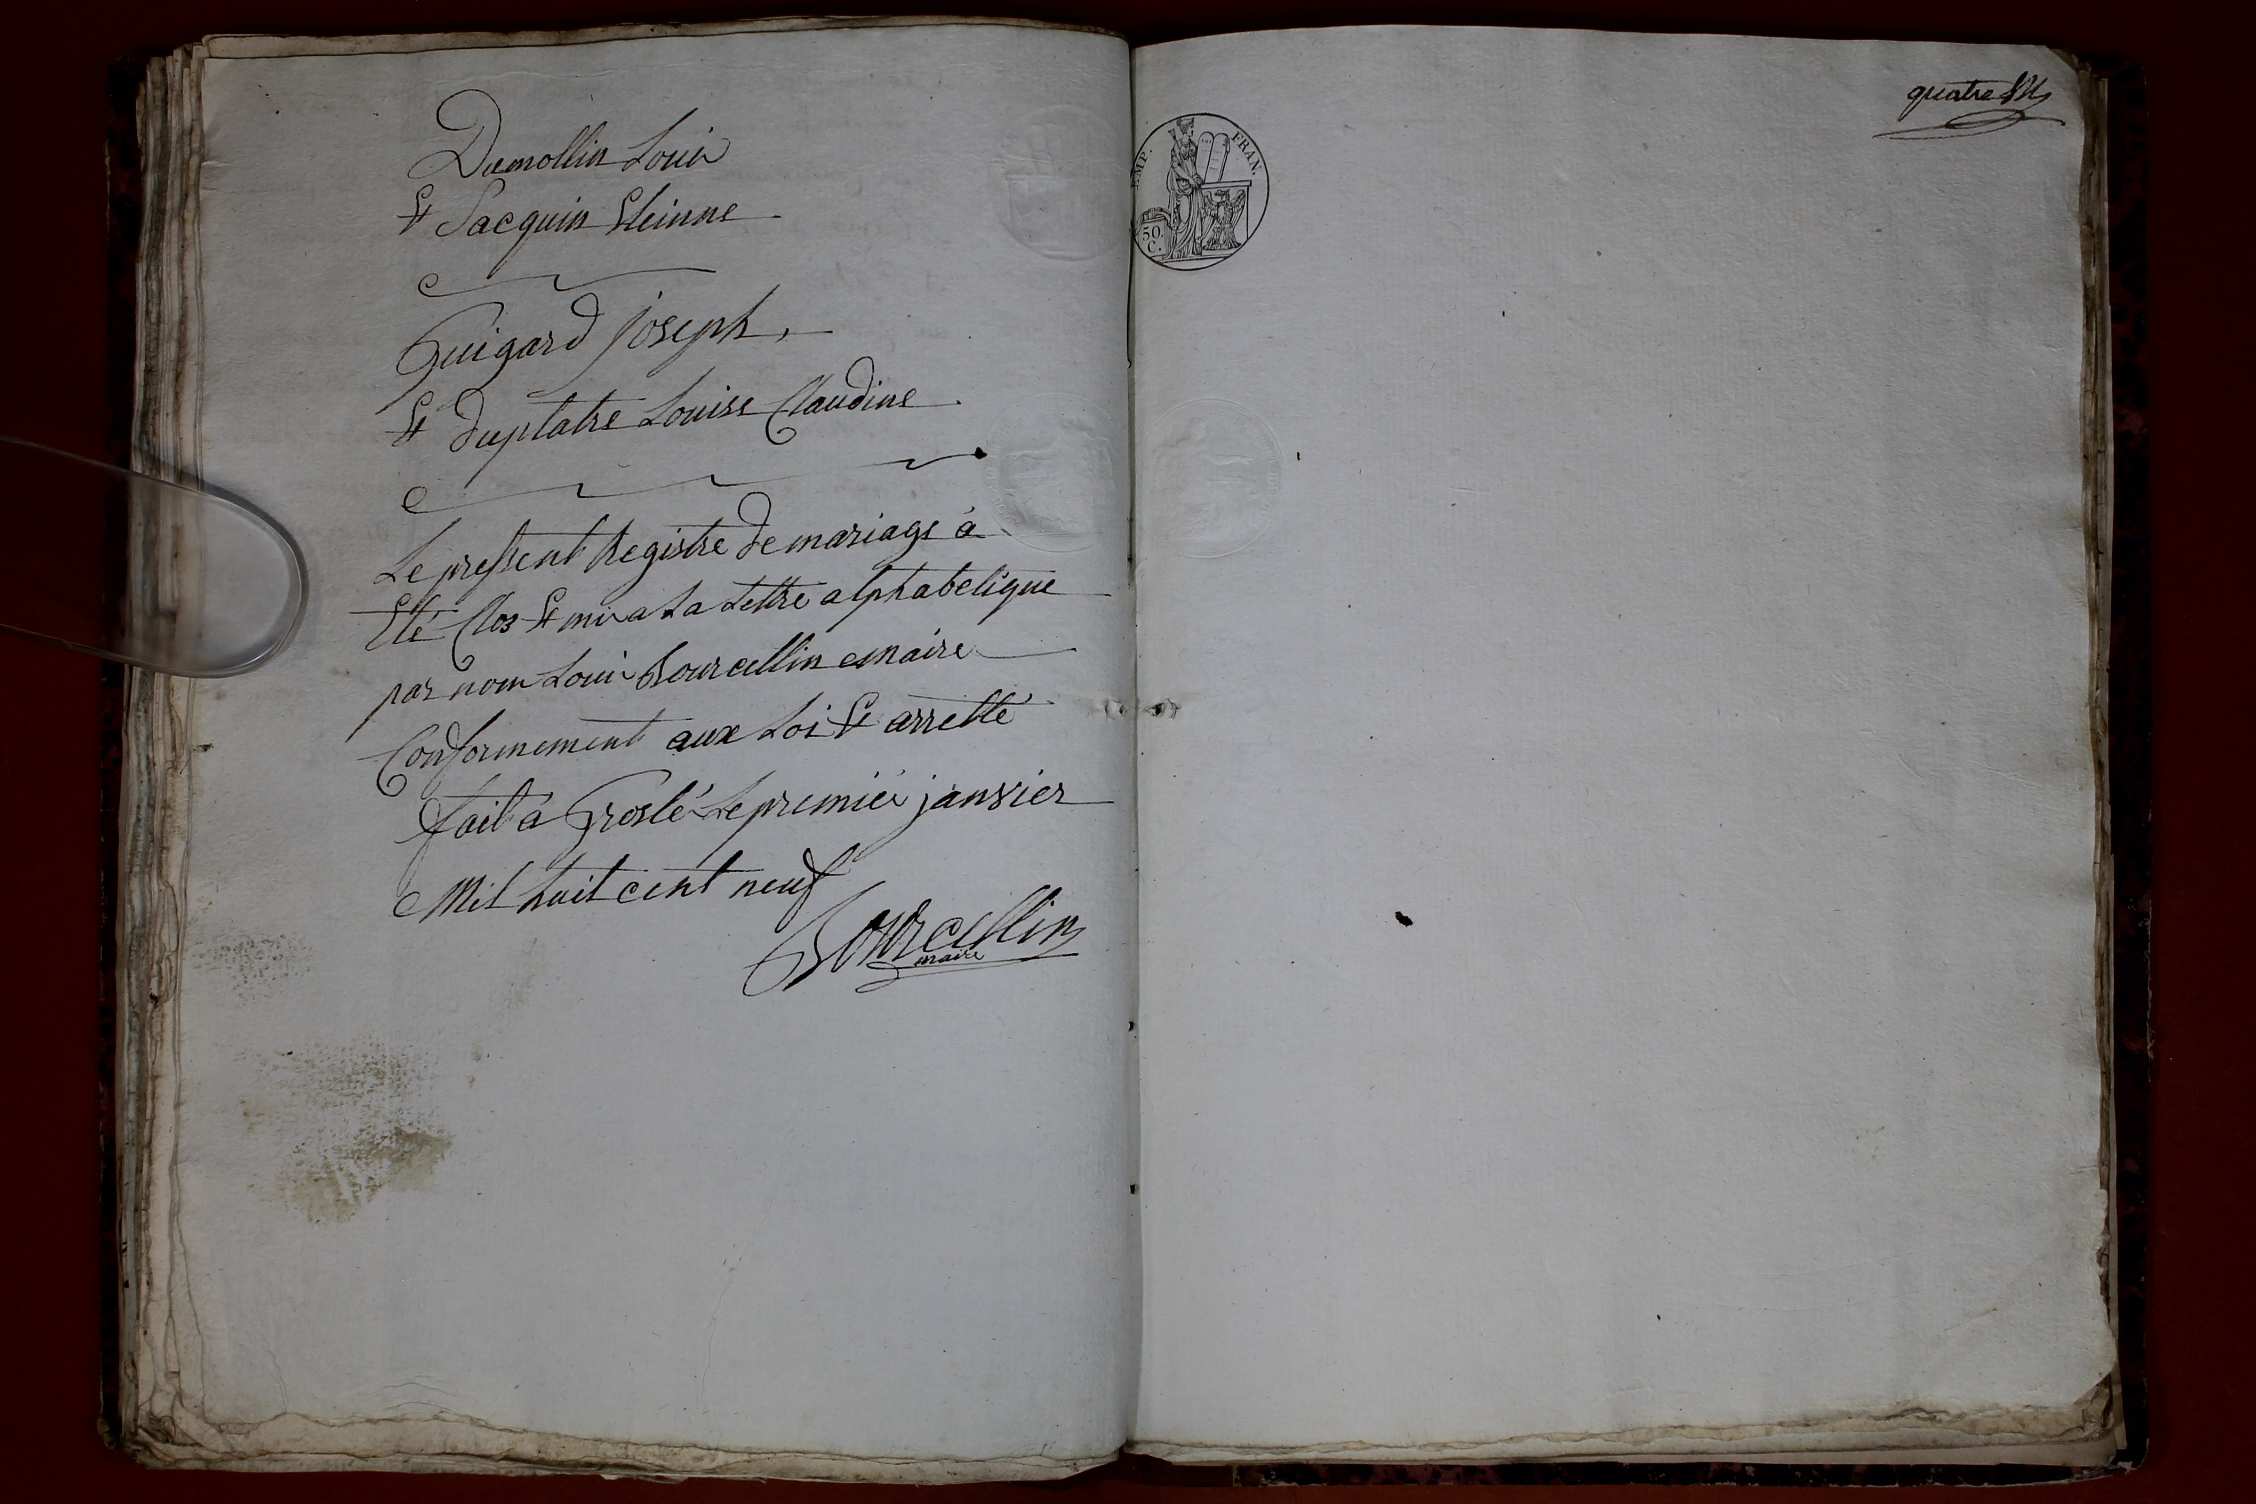 Dumollin Louis
Et Jacquin Eteinne
Guigard joseph,
Et duplatre Louise Claudine
Le present Registre de mariage à
Eté Clos Et mis a La Lettre alphabetique
par nous Louis Bourcellin maire
Conformement aux Loi Et arretté
fait à Groslé Le premier janvier
Mil huit cent neuf
Bourcellin
maire
quatre
EMP. FRAN.
50.
C.